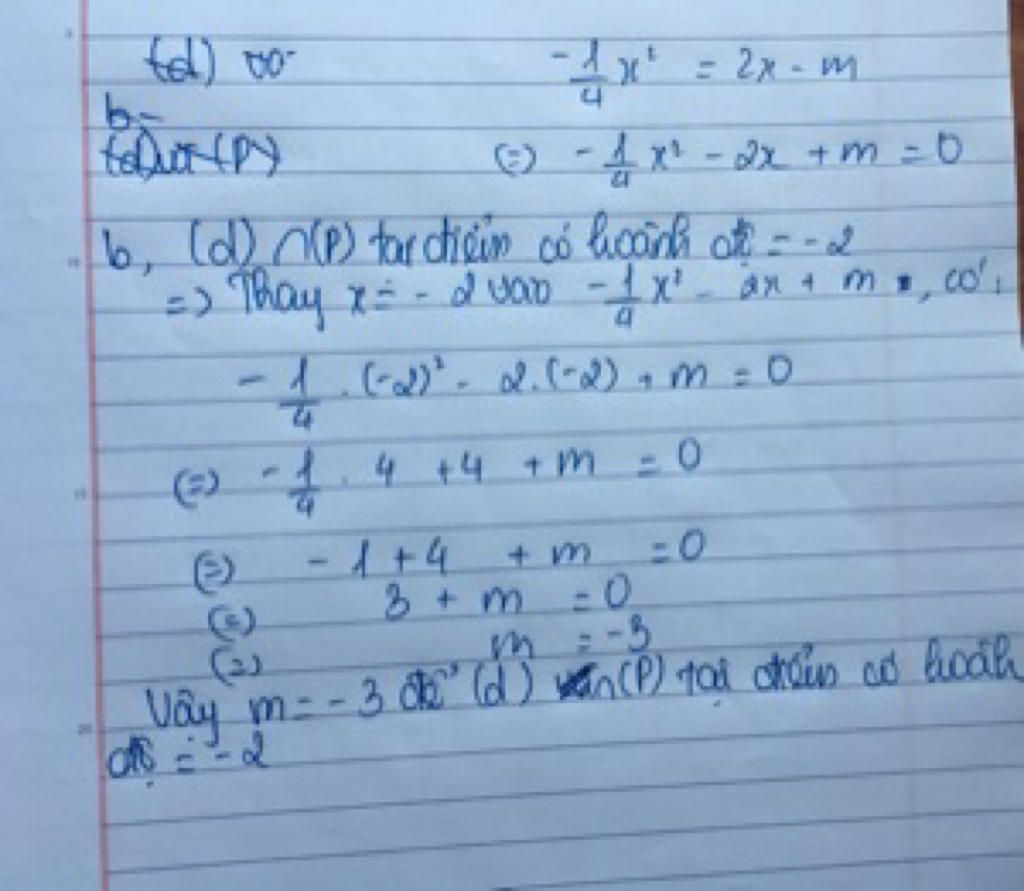 (d) và -1/4 x² = 2x - m
b-
(d) với (P) (=) -1/4 x² - 2x + m = 0
b, (d) ∩ (P) tại điểm có hoành độ = -2
=> Thay x = -2 vào -1/4 x² - 2x + m , có:
-1/4 . (-2)² - 2.(-2) + m = 0
(=) -1/4 . 4 + 4 + m = 0
(=) -1 + 4 + m = 0
(=) 3 + m = 0
(=) m = -3
Vậy m = -3 để (d) ∩ (P) tại điểm có hoành
độ = -2